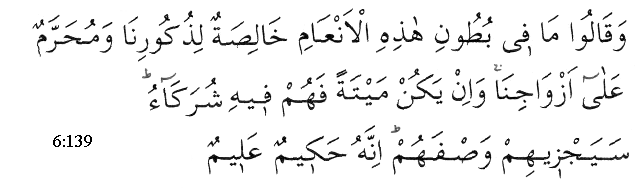 وَقَالُوا مَا فٖى بُطُونِ هٰذِهِ الْاَنْعَامِ خَالِصَةٌ لِذُكُورِنَا وَمُحَرَّمٌ
عَلٰٓى اَزْوَاجِنَاۚ وَاِنْ يَكُنْ مَيْتَةً فَهُمْ فٖيهِ شُرَكَٓاءُؕ
سَيَجْزٖيهِمْ وَصْفَهُمْؕ اِنَّهُ حَكٖيمٌ عَلٖيمٌ 6:139